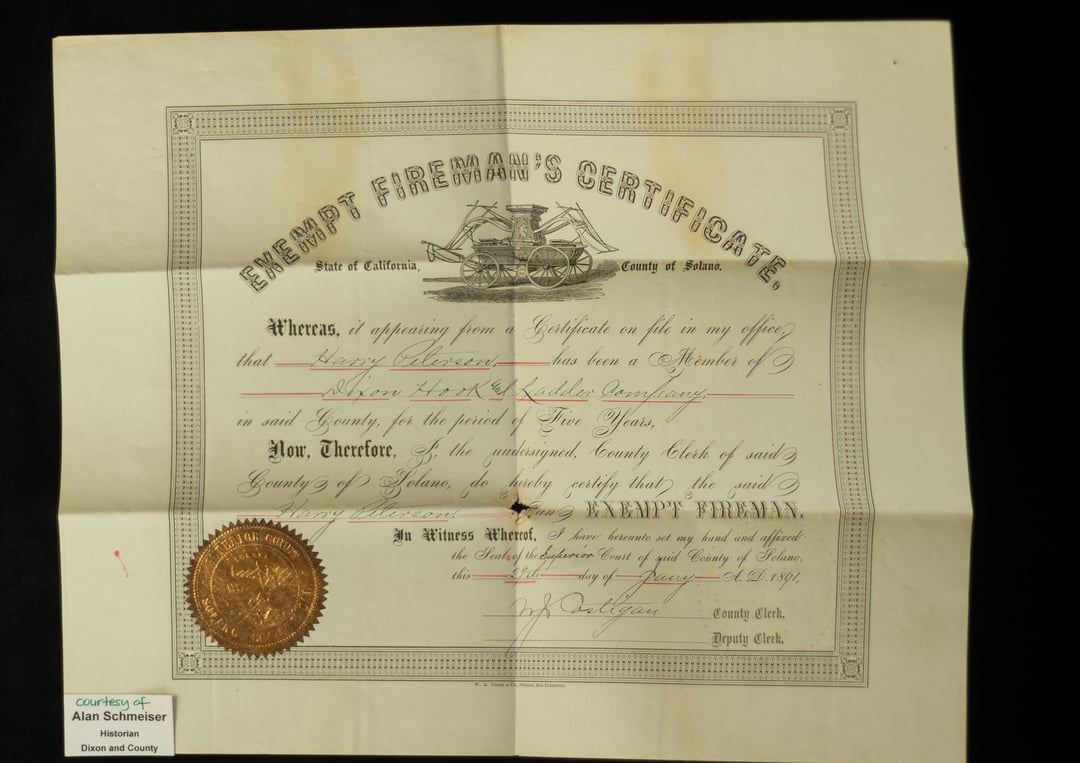 EXEMPT FIREMAN'S CERTIFICATE,
State of California, County of Solano.
Whereas, it appearing from a Certificate on file in my office,
that Harry Peterson, has been a Member of
Dixon Hook and Ladder Company,
in said County, for the period of Five Years,
Now, Therefore, I, the undersigned, County Clerk of said
County of Solano, do hereby certify that the said
Harry Peterson an EXEMPT FIREMAN.
In Witness Whereof, I have hereunto set my hand and affixed
the Seal of the Superior Court of said County of Solano,
this 29th day of Jany A.D. 1891.
Costigan County Clerk.
Deputy Clerk.
San Francisco.
courtesy of
Alan Schmeiser
Historian
Dixon and County